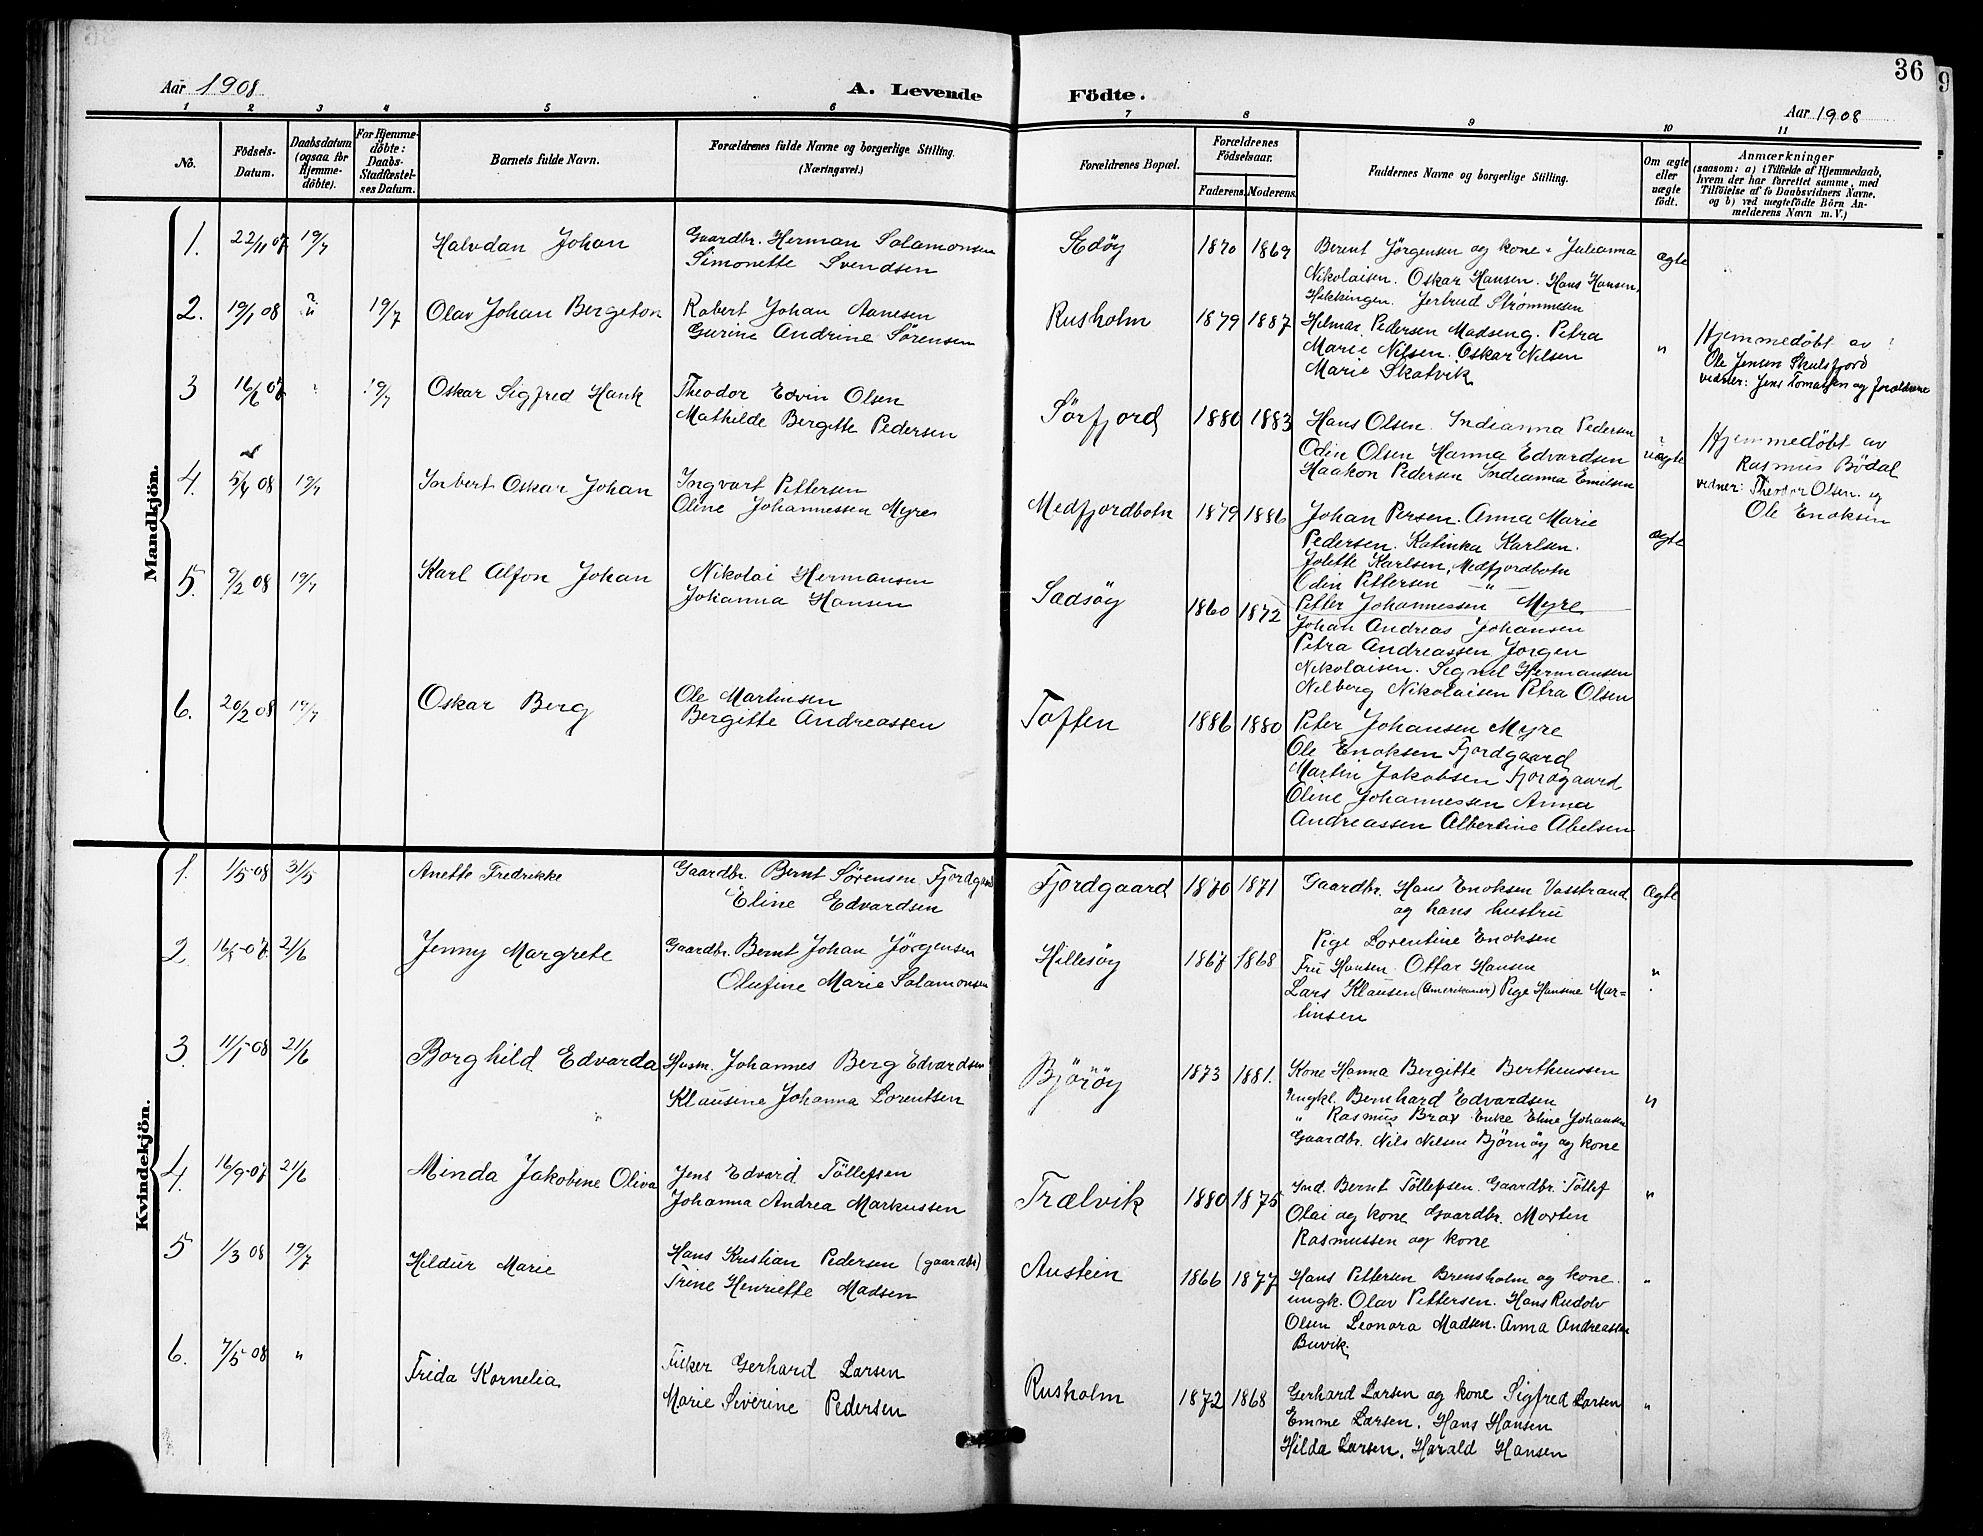 36
Aar 1908
A. Levende Födte.
Aar 1908
1 2 3 4 5 6 7 8 9 10 11
No.
Födsels-Datum.
Daabsdatum (ogsaa for Hjemme-döbte).
For Hjemme-döbte: Daabs-Stadfæstel-ses Datum.
Barnets fulde Navn.
Forældrenes fulde Navne og borgerlige Stilling.
(Næringsvei.)
Forældrenes Bopæl.
Forældrenes Födselsaar.
Faderens. Moderens.
Faddernes Navne og borgerlige Stilling.
Om ægte eller uægte födt.
Anmærkninger
(saasom: a) i Tilfælde af Hjemmedaab,
hvem der har forrettet samme, med
Tilföielse af to Daabsvidners Navne,
og b) ved uegtefödte Börn An-
melderens Navn m. V.)
Mandkjön.
1. 22/11 07 19/7 Halvdan Johan
Gaardbr. Herman Salamonsen
Simonette Svendsen
Edöy 1870 1869
Berent Jörgensen og kone Julianna
Nikolaisen. Oskar Hansen. Hans Hansen,
Hekkingen. Jertrud Strømmesen
ægte
2. 19/1 08 " 19/7 Olav Johan Bergeton
Robert Johan Aanesen
Gurine Andrine Sørensen
Rusholm 1879 1887
Hilmar Pedersen Madseng. Petra
Marie Nilsen. Oskar Nilsen
Marie Skatvik
"
Hjemmedøbt av
Ole Jensen Skulsfjord
vidner: Jens Tomassen og forældrene
3 16/6 07 19/7 Oskar Sigfred Hank
Theodor Edvin Olsen
Mathilde Bergitte Pedersen
Sörfjord 1880 1883
Hans Olsen. Indianna Pedersen
Odin Olsen Hanna Edvardsen
Haakon Pedersen Indianna Emilsen
uægte
Hjemmedøbt av
Rasmus Bödal
vidner: Theodor Olsen og
Ole Enoksen
4. 5/4 08 19/7 Inbert Oskar Johan
Ingvart Pettersen
Oline Johannessen Myre
Medfjordbotn 1879 1886
Johan Persen. Anna Marie
Pedersen. Katinka Karlsen.
Jolette Karlsen, Medfjordbotn
Odin Pettersen — " —
Petter Johannessen Myre
ægte
5. 9/2 08 19/7 Karl Alfon Johan
Nikolai Hermansen
Johanna Hansen
Sadsöy 1860 1872
Johan Andreas Johansen
Petra Andreassen Jorgen
Nikolaisen. Signel Hermansen
Nilberg Nikolaisen Petra Olsen
6. 20/2 08 19/7 Oskar Berg
Ole Martinsen
Bergitte Andreassen
Toften 1886 1880
Peter Johansen Myre
Ole Enoksen Fjordgaard
Martin Jakobsen Fjordgaard
Oline Johannessen Anna
Andreassen Albertine Abelsen
Kvindekjön.
1. 1/5-08 31/5 Anette Fredrikke
Gaardbr. Bernt Sörensen Fjordgaard
Eline Edvardsen
Fjordgaard 1870 1871
Gaardbr. Hans Enoksen Vasstrand
og hans hustru
Pige Lorentine Enoksen
Ægte
2. 21/6 Jenny Margrete
Gaardbr. Bernt Johan Jørgensen
Olufine Marie Salamonsen
Hillesöy 1867 1868
Fru Hansen. Ottar Hansen
Lars Klausen (Amerikaner) Pige Hansine Mar=
tinsen
"
3. 11/1-08 21/6 Borghild Edvarda
Husm. Johannes Berg Edvardsen
Klausine Johanna Lorentsen
Björöy 1873 1881.
Kone Hanna Bergitte Bertheussen
Ungkl. Bernhard Edvardsen
" Rasmus Brox Enke Eline Johansen
Gaardbr. Nils Nilsen Bjørnöy og kone
"
4. 16/9-07 21/6 Minda Jakobine Oliva
Jens Edvard Töllefsen
Johanna Andrea Markussen
Trælvik 1880 1875
Ind. Bernt Töllefsen. Gaardbr. Töllef
Olai og kone Gaardbr. Morten
Rasmussen og kone
"
5 1/3 08 19/7 Hildur Marie
Hans Kristian Pedersen (gaardbr)
Trine Henriette Madsen
Austein 1866 1877
Hans Pettersen Brensholm og kone.
ungk. Olav Pettersen. Hans Rudolv
Olsen Leonora Madsen. Anna Andreassen
Buvik.
"
6. 7/5 08 " Frida Kornelia
Fisker Gerhard Larsen
Marie Siverine Pedersen
Rusholm 1872 1868
Gerhard Larsen og kone Sigfred Larsen
Emme Larsen. Hans Hansen
Hilda Larsen. Harald Hansen
"